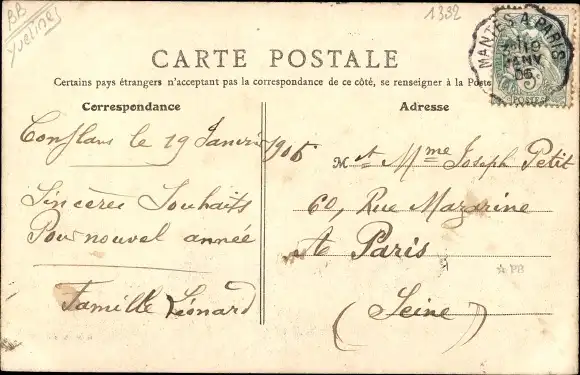 BB
Yvelines
1332
MANTES A PARIS
19
JANV
5c
POSTES
CARTE POSTALE
Certains pays étrangers n'acceptant pas la correspondance de ce côté, se renseigner à la Poste
Correspondance
Adresse
Conflans le 19 Janvier 1906
Sincères Souhaits
Pour nouvel année
Famille Léonard
M et Mme Joseph Petit
60, Rue Mazarine
A Paris
(Seine)
☆ PB